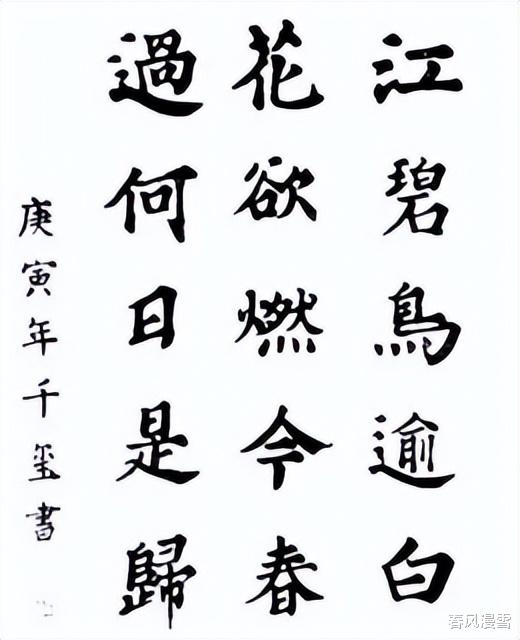 江碧鳥逾白
花欲燃今春
過何日是歸
庚寅年千玺書
春风漫雪